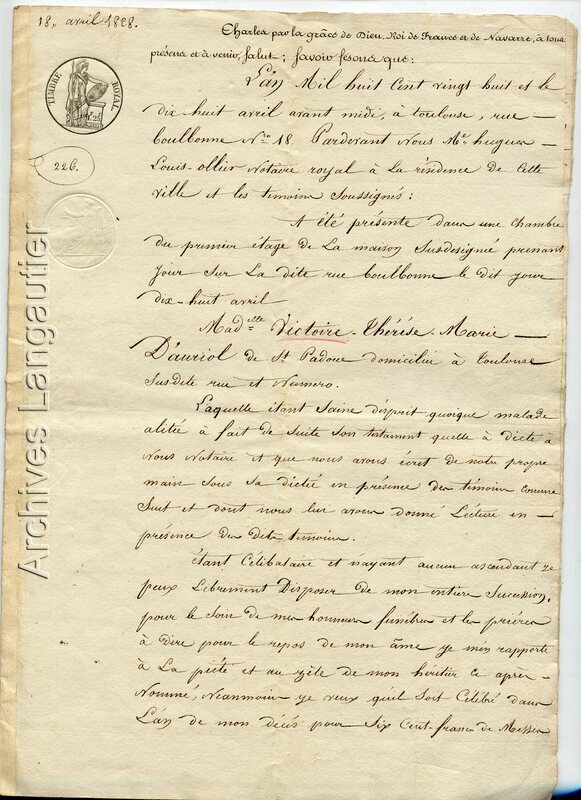 18. avril 1828.
Charles par la grâce de Dieu, Roi de France et de Navarre, à tous
présens et à venir, Salut; Savoir fesons que:
TIMBRE ROYAL
1f 25
226.
L'an Mil huit Cent vingt huit et le
dix-huit avril avant midi, à toulouse, rue
boulbonne No 18. Pardevant Nous Me hugues
Louis-ollier Notaire royal à La résidence de Cette
ville et les temoins Soussignés:
A été présente dans une Chambre
du premier étage de La maison Susdesignée prenant
jour Sur La dite rue boulbonne le dit jour
dix-huit avril
Madelle Victoire-Thérèse-Marie
D'auriol de St Padoue domiciliée à Toulouse
Susdite rue et Numero.
Laquelle étant Saine d'esprit quoique malade
alitée à fait de Suite Son testament quelle à dicté à
Nous Notaire et que nous avons écrit de notre propre
main Sous Sa dictée en présence des témoins Comme
Suit et dont nous lui avons donné Lecture en
présence des dits témoins.
étant Célibataire et n'ayant aucun ascendant je
peux Librement Disposer de mon entière Succession,
pour le Soin de mes honneurs funèbres et les prières
à dire pour le repos de mon âme je m'en rapporte
à La piété et au zèle de mon héritier Ce après
Nommé, Neanmoins je veux qu'il Soit Célébré dans
L'an de mon décès pour Six Cent francs de Messes
Archives Langautier